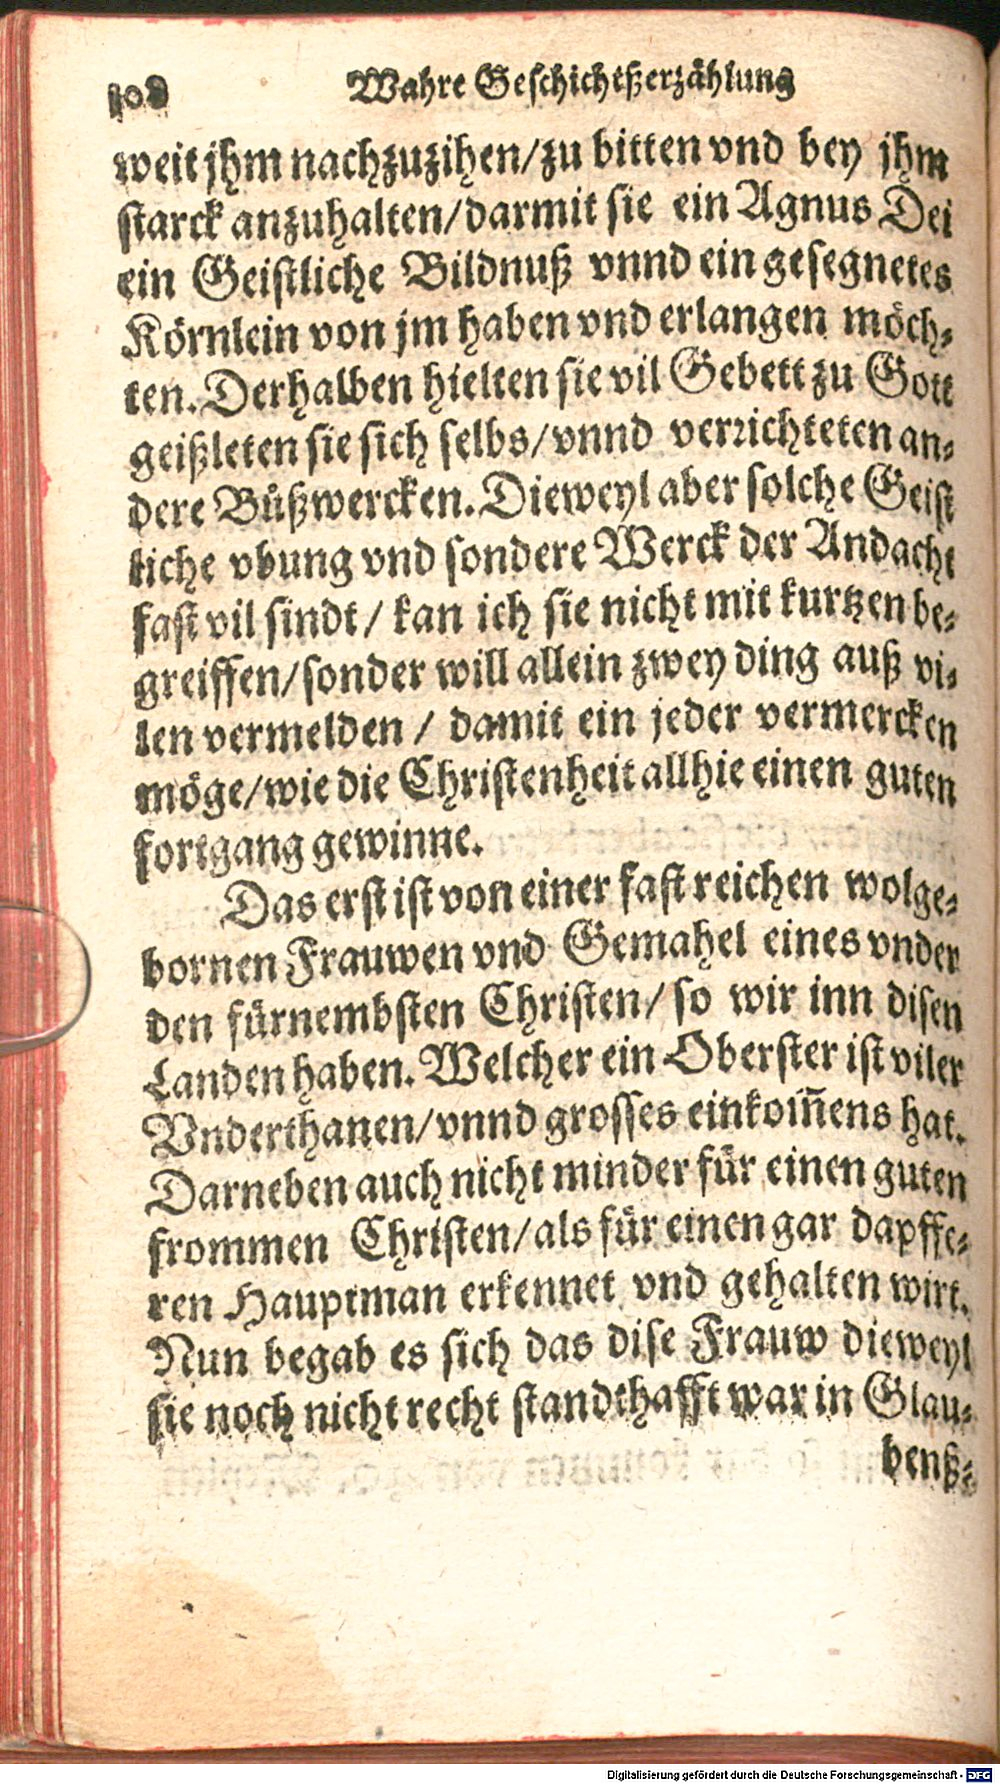 108 Wahre Geschichtßerzählung
weit jhm nachzuzihen/zu bitten vnd bey jhm
starck anzuhalten/darmit sie ein Agnus Dei
ein Geistliche Bildnuß vnnd ein gesegnetes
Körnlein von jm haben vnd erlangen möch-
ten. Derhalben hielten sie vil Gebett zu Gott
geißleten sie sich selbs/vnnd verrichteten an-
dere Bůßwercken. Dieweyl aber solche Geist
liche vbung vnd sondere Werck der Andacht
fast vil sindt/ kan ich sie nicht mit kurtzen be-
greiffen/sonder will allein zwey ding auß vi-
len vermelden/ damit ein jeder vermercken
möge/wie die Christenheit allhie einen guten
fortgang gewinne.
Das erst ist von einer fast reichen wolge-
bornen Frauwen vnd Gemahel eines vnder
den fürnembsten Christen/ so wir inn disen
Landen haben. Welcher ein Oberster ist viler
Vnderthanen/vnnd grosses einkom̃ens hat.
Darneben auch nicht minder für einen guten
frommen Christen/als für einen gar dapffe-
ren Hauptman erkennet vnd gehalten wirt.
Nun begab es sich das dise Frauw dieweyl
sie noch nicht recht standthafft war in Glau-
benß-
Digitalisierung gefördert durch die Deutsche Forschungsgemeinschaft - DFG